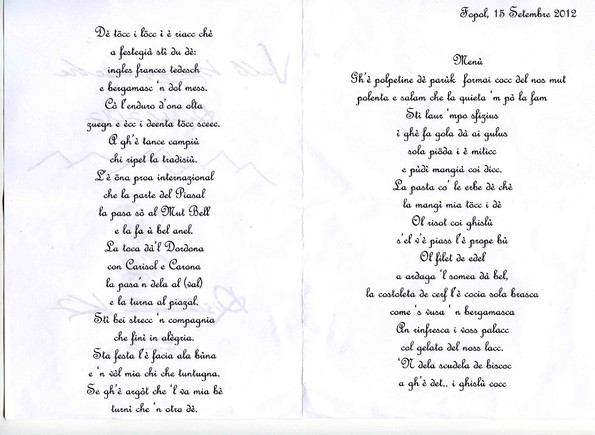 Dè töcc i löcc ì è riacc chè
a festegià stì du dè:
ingles frances tedesch
e bergamasc 'n dol mess.
Cö l'enduro d'ona olta
zuegn e ècc i deenta töcc sceec.
A gh'è tance campiù
chi ripet la tradisiù.
L'è öna proa internazional
che la parte del Piasal
la pasa sö al Mut Bell
e la fa ù bel anel.
La toca dà'l Dordona
con Carisol e Carona
la pasa 'n dela al (val)
e la turna al piazal.
Stì bei strecc 'n compagnia
che finì in alègria.
Sta festa l'è facia ala bùna
e 'n völ mia chi che tuntugna.
Se gh'è argöt che 'l va mia bè
turnì che 'n otro dè.
Fopol, 15 Setembre 2012
Menù
Gh'è polpetine dè parùk formai cocc del nos mut
polenta e salam che la quieta 'm pò la fam
Sti laur 'mpo sfizius
i ghè fa gola dà ai gulus
sola piöda i è miticc
e pùdì mangià coi dicc.
La pasta co' le erbe dè chè
la mangì mia töcc i dè
Ol risot coi ghislù
s'el v'è piass l'è prope bù
Ol filet de edel
a ardaga 'l somea dà bel,
la costoleta de cerf l'è cocia sola brasca
come 's vusa 'n bergamasca
An rinfresca i voss palacc
col gelato del noss lacc.
'N dela scudela de biscoc
a gh'è det.. i ghislù cocc